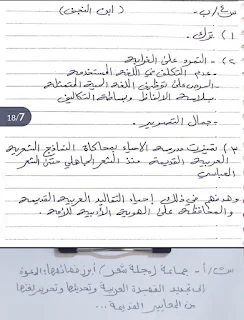 س٤/ب- (ابن النبيه)
١) ترك.
٢) - التمرد على الغرابة
- عدم التكلف في اللغة المستخدمة
الحرص على توظيف اللغة الحية المتمثلة
بسلاسة الالفاظ وبساطة التكاليف
- جمال التصوير.
18/7
٣) تميزت مدرسة الإحياء بمحاكاة النماذج الشعرية
العربية القديمة منذ الشعر الجاهلي حتى الشعر
العباسي
وهدفهم من ذلك إحياء التقاليد العربية القديمة
والمحافظة على الهوية الأدبية للأمة.
س٤/أ- جماعة (مجلة شعر) أبرز خصائصها: الدعوة
إلى تجديد القصيدة العربية وتحديثها وتحريرها
من المعايير القديمة...